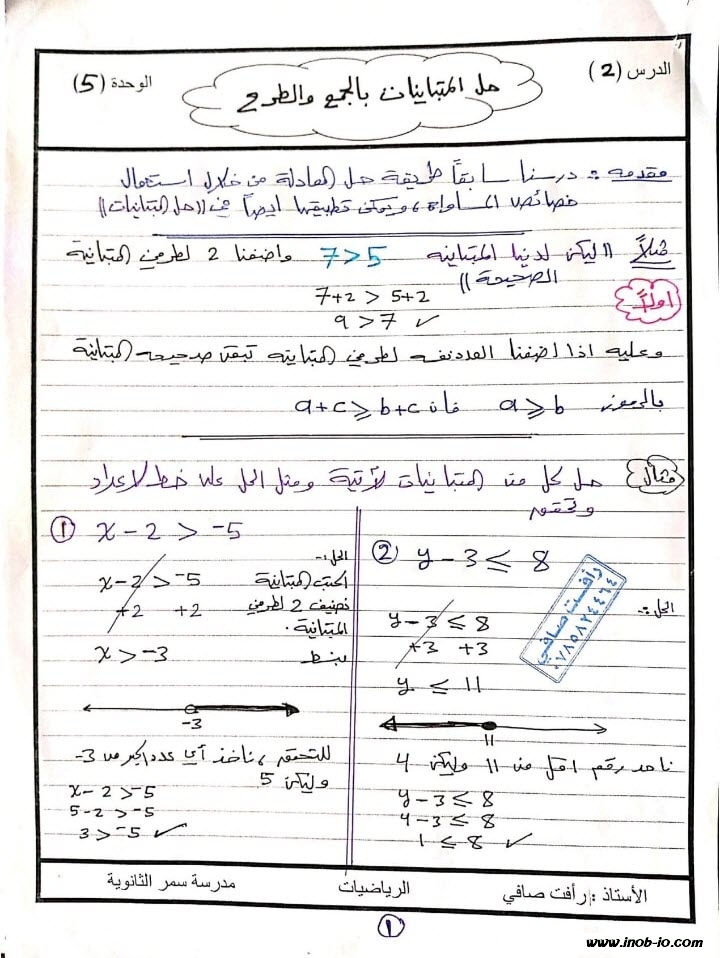 الدرس (2)
حل المتباينات بالجمع والطرح
الوحدة (5)
مقدمه : درسنا سابقاً طريقة حل المعادلة من خلال استعمال
خصائص المساواة، ويمكن تطبيقها ايضاً في ((حل المتباينات))
مثلاً اا ليكن لدينا المتباينه 7>5 واضفنا 2 لطرفي المتباينة
الصحيحة اا
اولاً
7+2 > 5+2
9 > 7 ✓
وعليه اذا اضفنا العدد نفسه لطرفي المتباينه تبقى صحيحه المتباينة
بالرموز a ≥ b فان a+c ≥ b+c
مثال
حل كل من المتباينات الآتية ومثل الحل على خط الاعداد
وتحقق
① x - 2 > -5
الحل :-
x - 2 > -5 اكتب المتباينة
+2 +2 نضيف 2 لطرفي
المتباينة.
x > -3 بسط
-3
للتحقق، ناخذ أي عدد اكبر من 3-
وليكن 5
x - 2 > -5
5 - 2 > -5
3 > -5 ✓
② y - 3 ≤ 8
الحل :-
y - 3 ≤ 8
+3 +3
y ≤ 11
11
ناخد رقم اقل من 11 وليكن 4
y - 3 ≤ 8
4 - 3 ≤ 8
1 ≤ 8 ✓
رأفت صافي
٠٧٨٥٨٢٤٤٦٤
الأستاذ : رأفت صافي
الرياضيات
مدرسة سمر الثانوية
①
www.inob-io.com